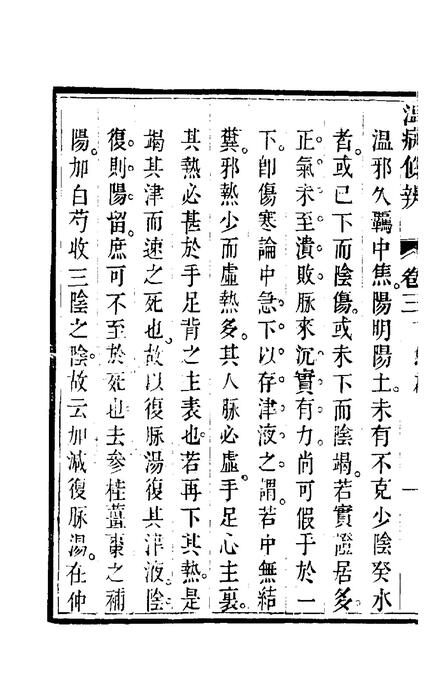 溫病條辨 卷三下焦 一
溫邪久羈中焦。陽明陽土。未有不克少陰癸水
者。或已下而陰傷。或未下而陰竭。若實證居多。
正氣未至潰敗。脈來沉實有力。尚可假手於一
下。卽傷寒論中急下以存津液之謂。若中無結
糞。邪熱少而虛熱多。其人脈必虛。手足心主裏。
其熱必甚於手足背之主表也。若再下其熱。是
竭其津而速之死也。故以復脈湯復其津液。陰
復則陽留。庶可不至於死也。去參桂薑棗之補
陽。加白芍收三陰之陰。故云加減復脈湯。在仲